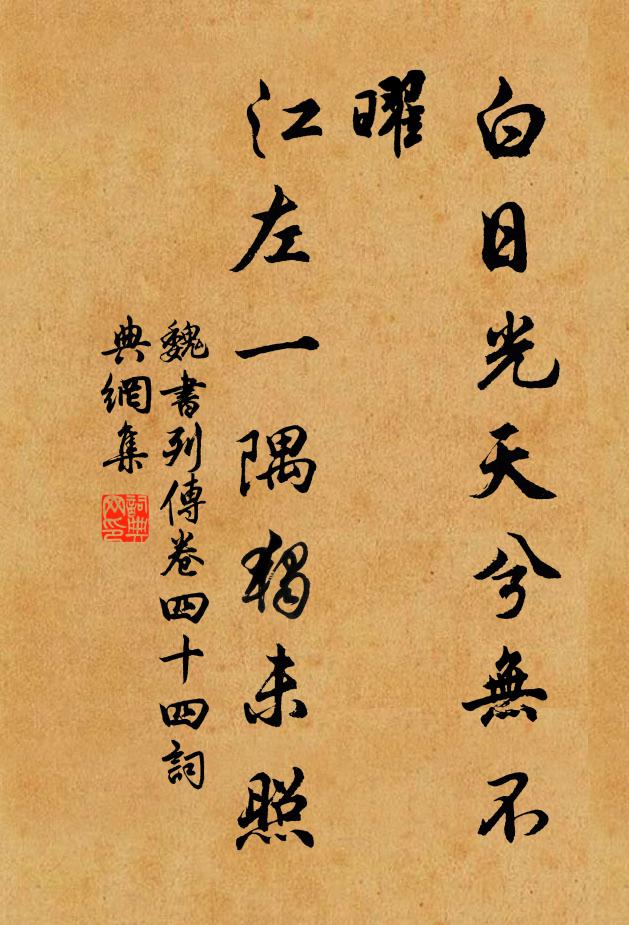 白日光天兮無不
曜
江左一隅獨未照
魏書列傳卷四十四詞
典網集
詞典
网印